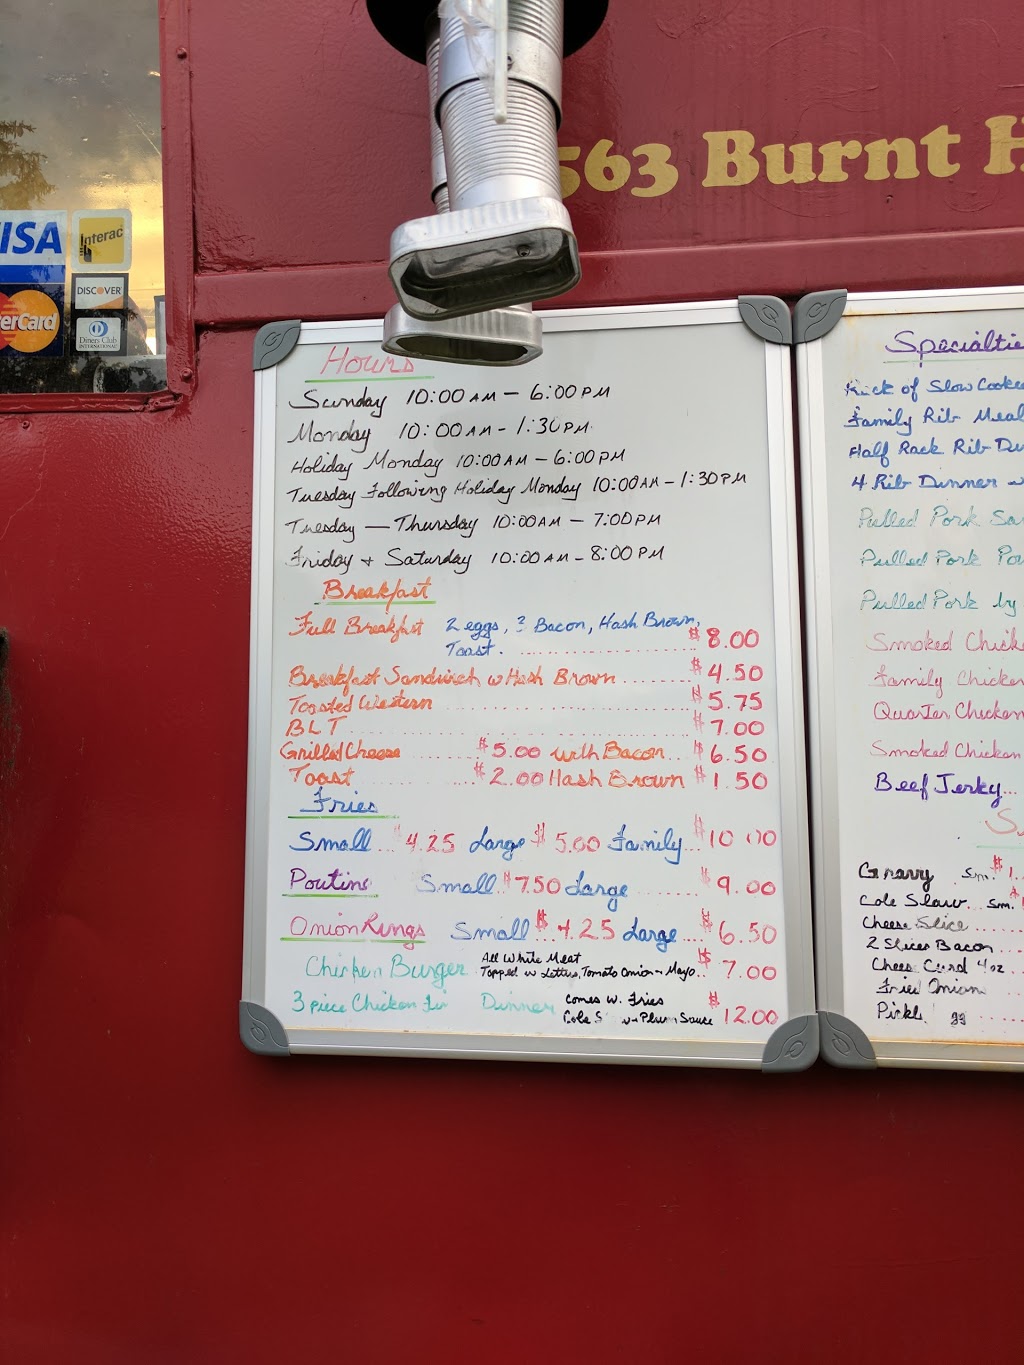 VISA
Interac
MasterCard
DISCOVER
Diners Club
INTERNATIONAL
563 Burnt H
Hours
Sunday 10:00 AM - 6:00 PM
Monday 10:00 AM - 1:30 PM
Holiday Monday 10:00 AM - 6:00 PM
Tuesday Following Holiday Monday 10:00 AM - 1:30 PM
Tuesday - Thursday 10:00 AM - 7:00 PM
Friday + Saturday 10:00 AM - 8:00 PM
Breakfast
Full Breakfast 2 eggs, Bacon, Hash Brown,
Toast. $8.00
Breakfast Sandwich w Hash Brown ........ $4.50
Toasted Western ........ $5.75
BLT ........ $7.00
Grilled Cheese $5.00 with Bacon.. $6.50
Toast ..... $2.00 Hash Brown $1.50
Fries
Small ... $4.25 Large $5.00 Family $10.00
Poutine Small.. $7.50 Large ....... $9.00
Onion Rings Small $4.25 Large.... $6.50
Chicken Burger All White Meat
Topped w Lettus, Tomato Onion + Mayo.. $7.00
3 piece Chicken Fin Dinner Comes w. Fries
Cole S w Plum Sauce $12.00
Specialtie
Rack of Slow Cooke
Family Rib Meal
Half Rack Rib Din
4 Rib Dinner w
Pulled Pork San
Pulled Pork Pou
Pulled Pork by
Smoked Chick
Family Chicken
Quarter Chicken
Smoked Chicken
Beef Jerky...
S
Gravy Sm. $1.
Cole Slaw.. Sm.
Cheese Slice ......
2 Slices Bacon ....
Chees Curd 4oz ..
Fried Onions
Pickl